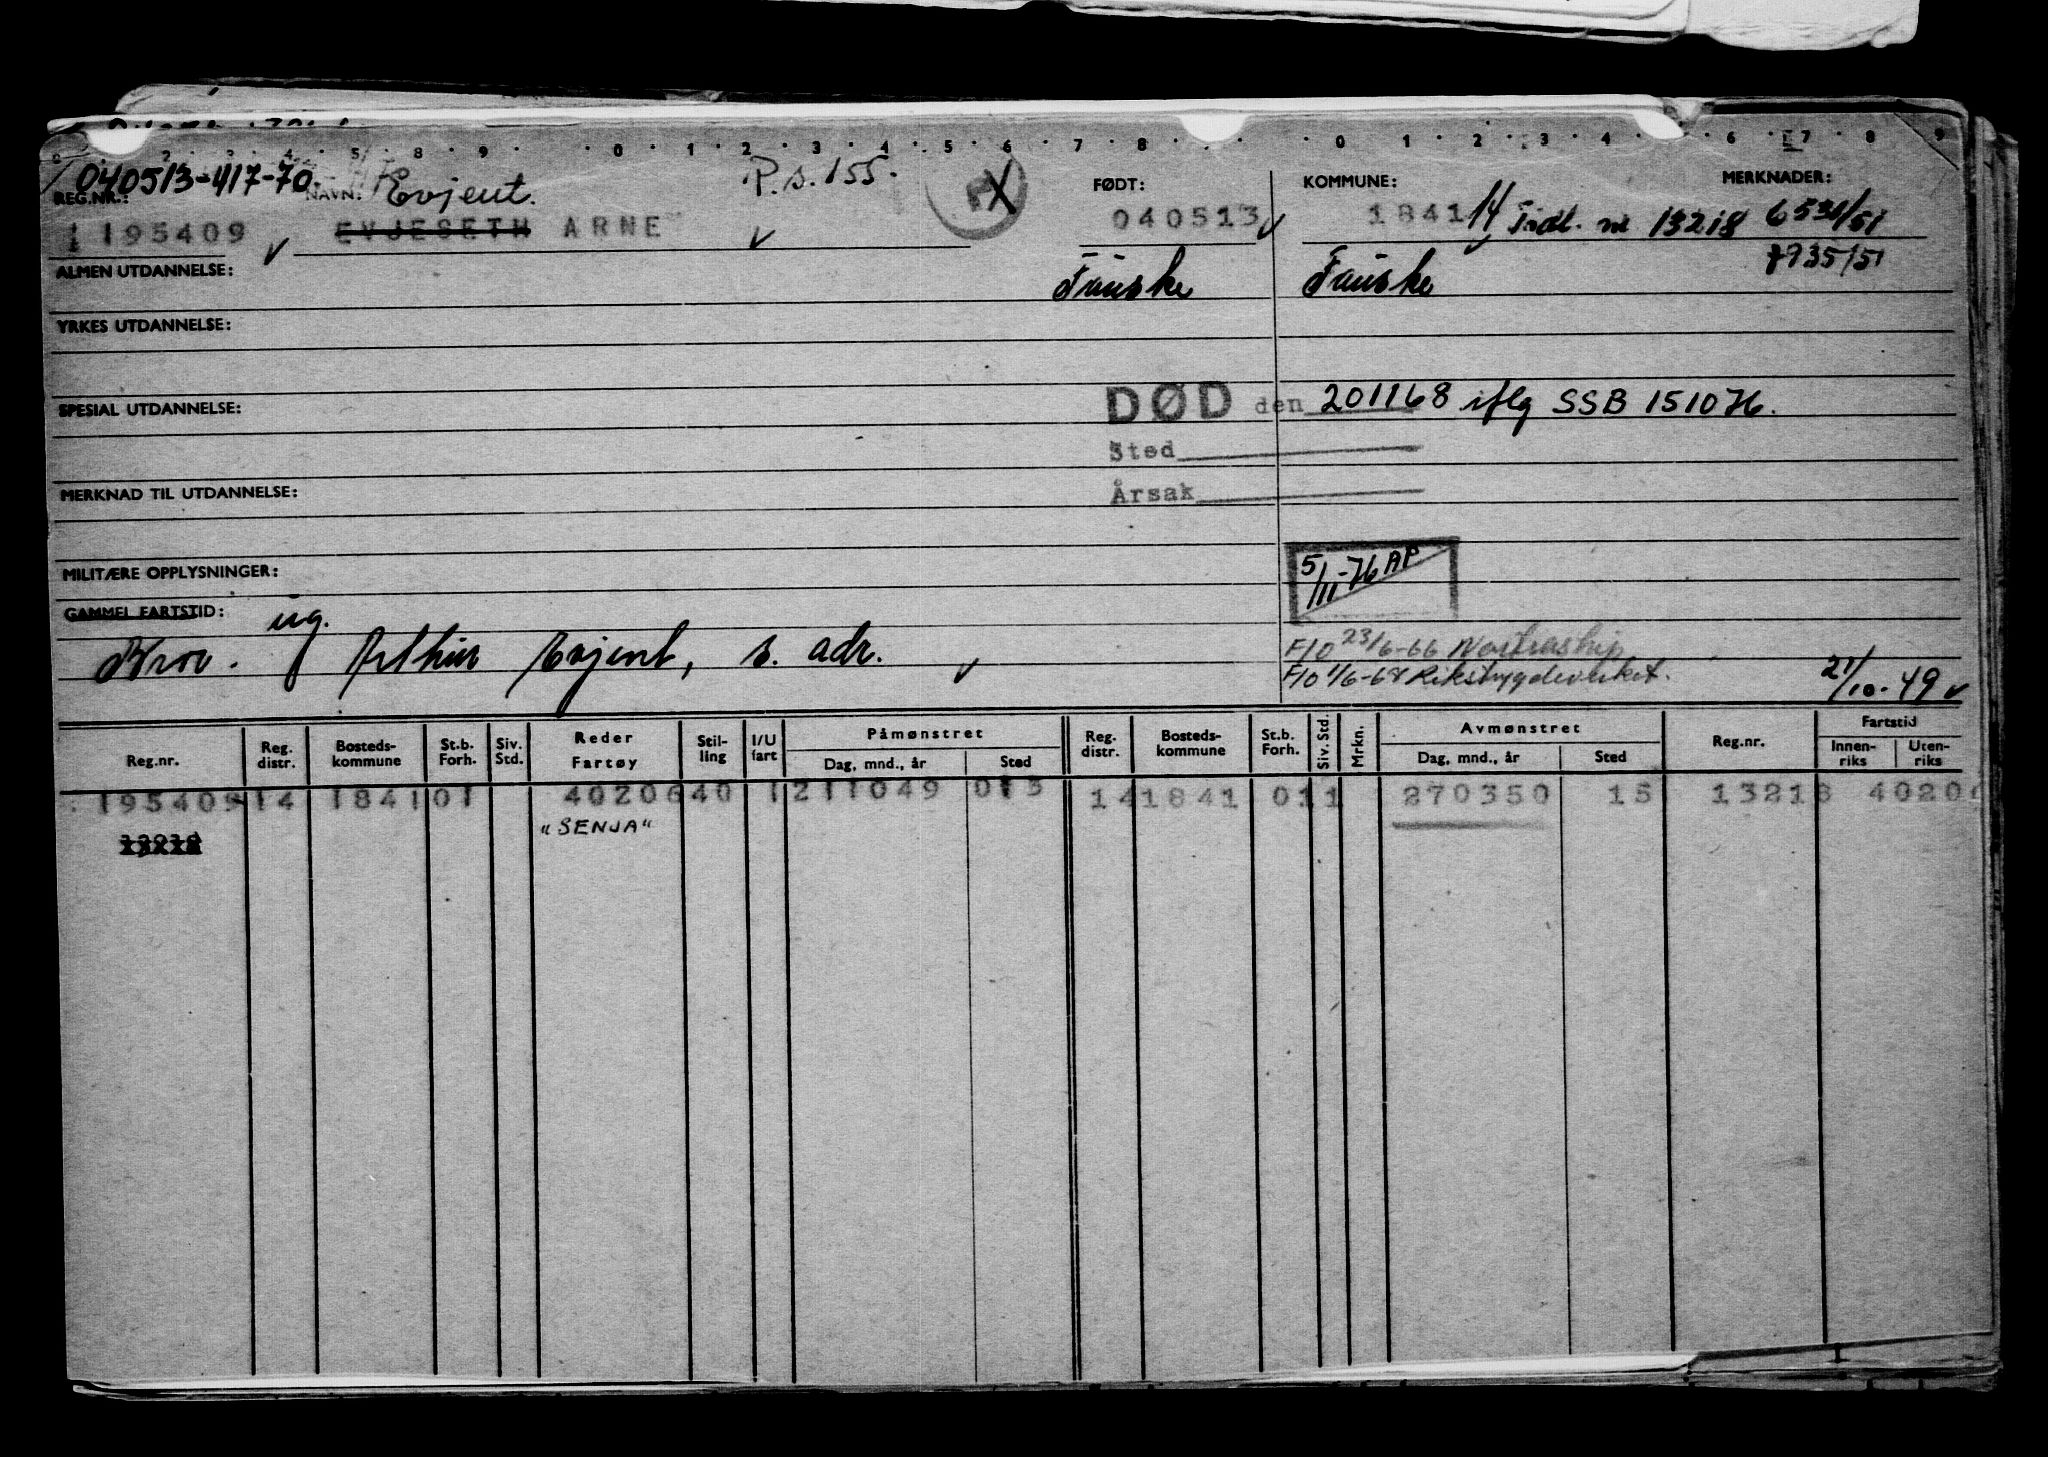 0 · 1 · 2 · 3 · 4 · 5 · 6 · 7 · 8 · · · 0 · 1 · 2 · 3 · 4 · 6 · 7 · 8 · 9
040513-417-70. Evjent. P.s. 155.
REG.NR.: NAVN: FØDT: KOMMUNE: MERKNADER:
195409 EVJESETH ARNE 040513 1841 14 Tidl. nr 13218 6531/51
7935/51
ALMEN UTDANNELSE: Fauske Fauske
YRKES UTDANNELSE:
SPESIAL UTDANNELSE: DØD den 201168 iflg SSB 151076.
Sted
Årsak
MERKNAD TIL UTDANNELSE:
MILITÆRE OPPLYSNINGER: 5/11-76 AP
GAMMEL FARTSTID: ug.
Bror. Arthur Evjent, s. adr.
F10 23/6-66 Nortraship
F10 1/6-68 Rikstrygdeverket. 21/10-49
Reg.nr. Reg. distr. Bosteds-kommune St.b. Forh. Siv. Std. Reder Fartøy Stil-ling I/U fart Påmønstret Dag, mnd., år Sted Reg. distr. Bosteds-kommune St.b. Forh. Siv. Std. Mrkn. Avmønstret Dag, mnd., år Sted Reg.nr. Fartstid Innen-riks Uten-riks
195409 14 1841 01 40206 40 1 211049 013 14 1841 01 1 270350 15 13218 4020
"SENJA"